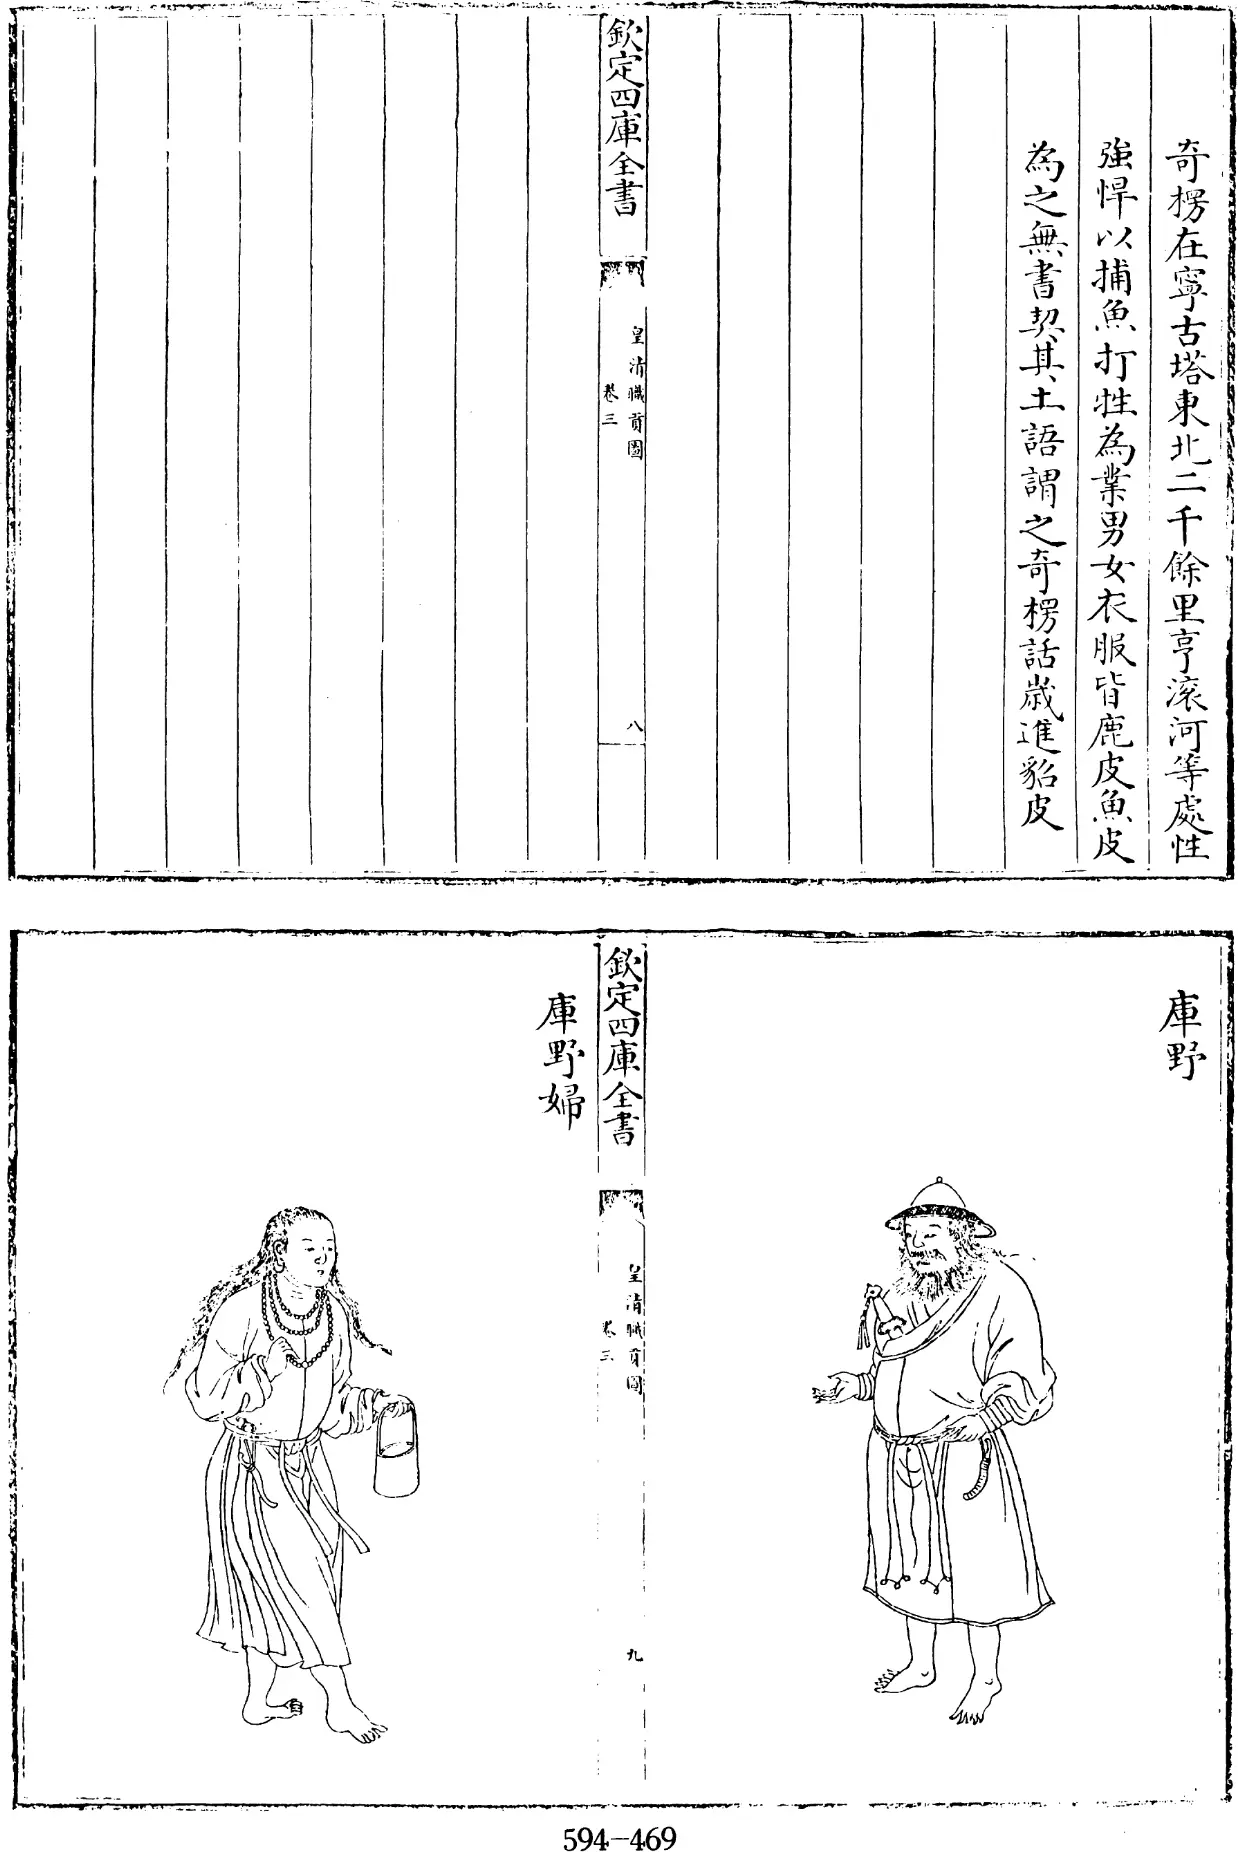 奇楞在寧古塔東北二千餘里亨滾河等處性
強悍以捕魚打牲為業男女衣服皆鹿皮魚皮
為之無書契其土語謂之奇楞話歲進貂皮
欽定四庫全書
皇清職貢圖
卷三
八
庫野
欽定四庫全書
皇清職貢圖
卷三
九
庫野婦
594-469